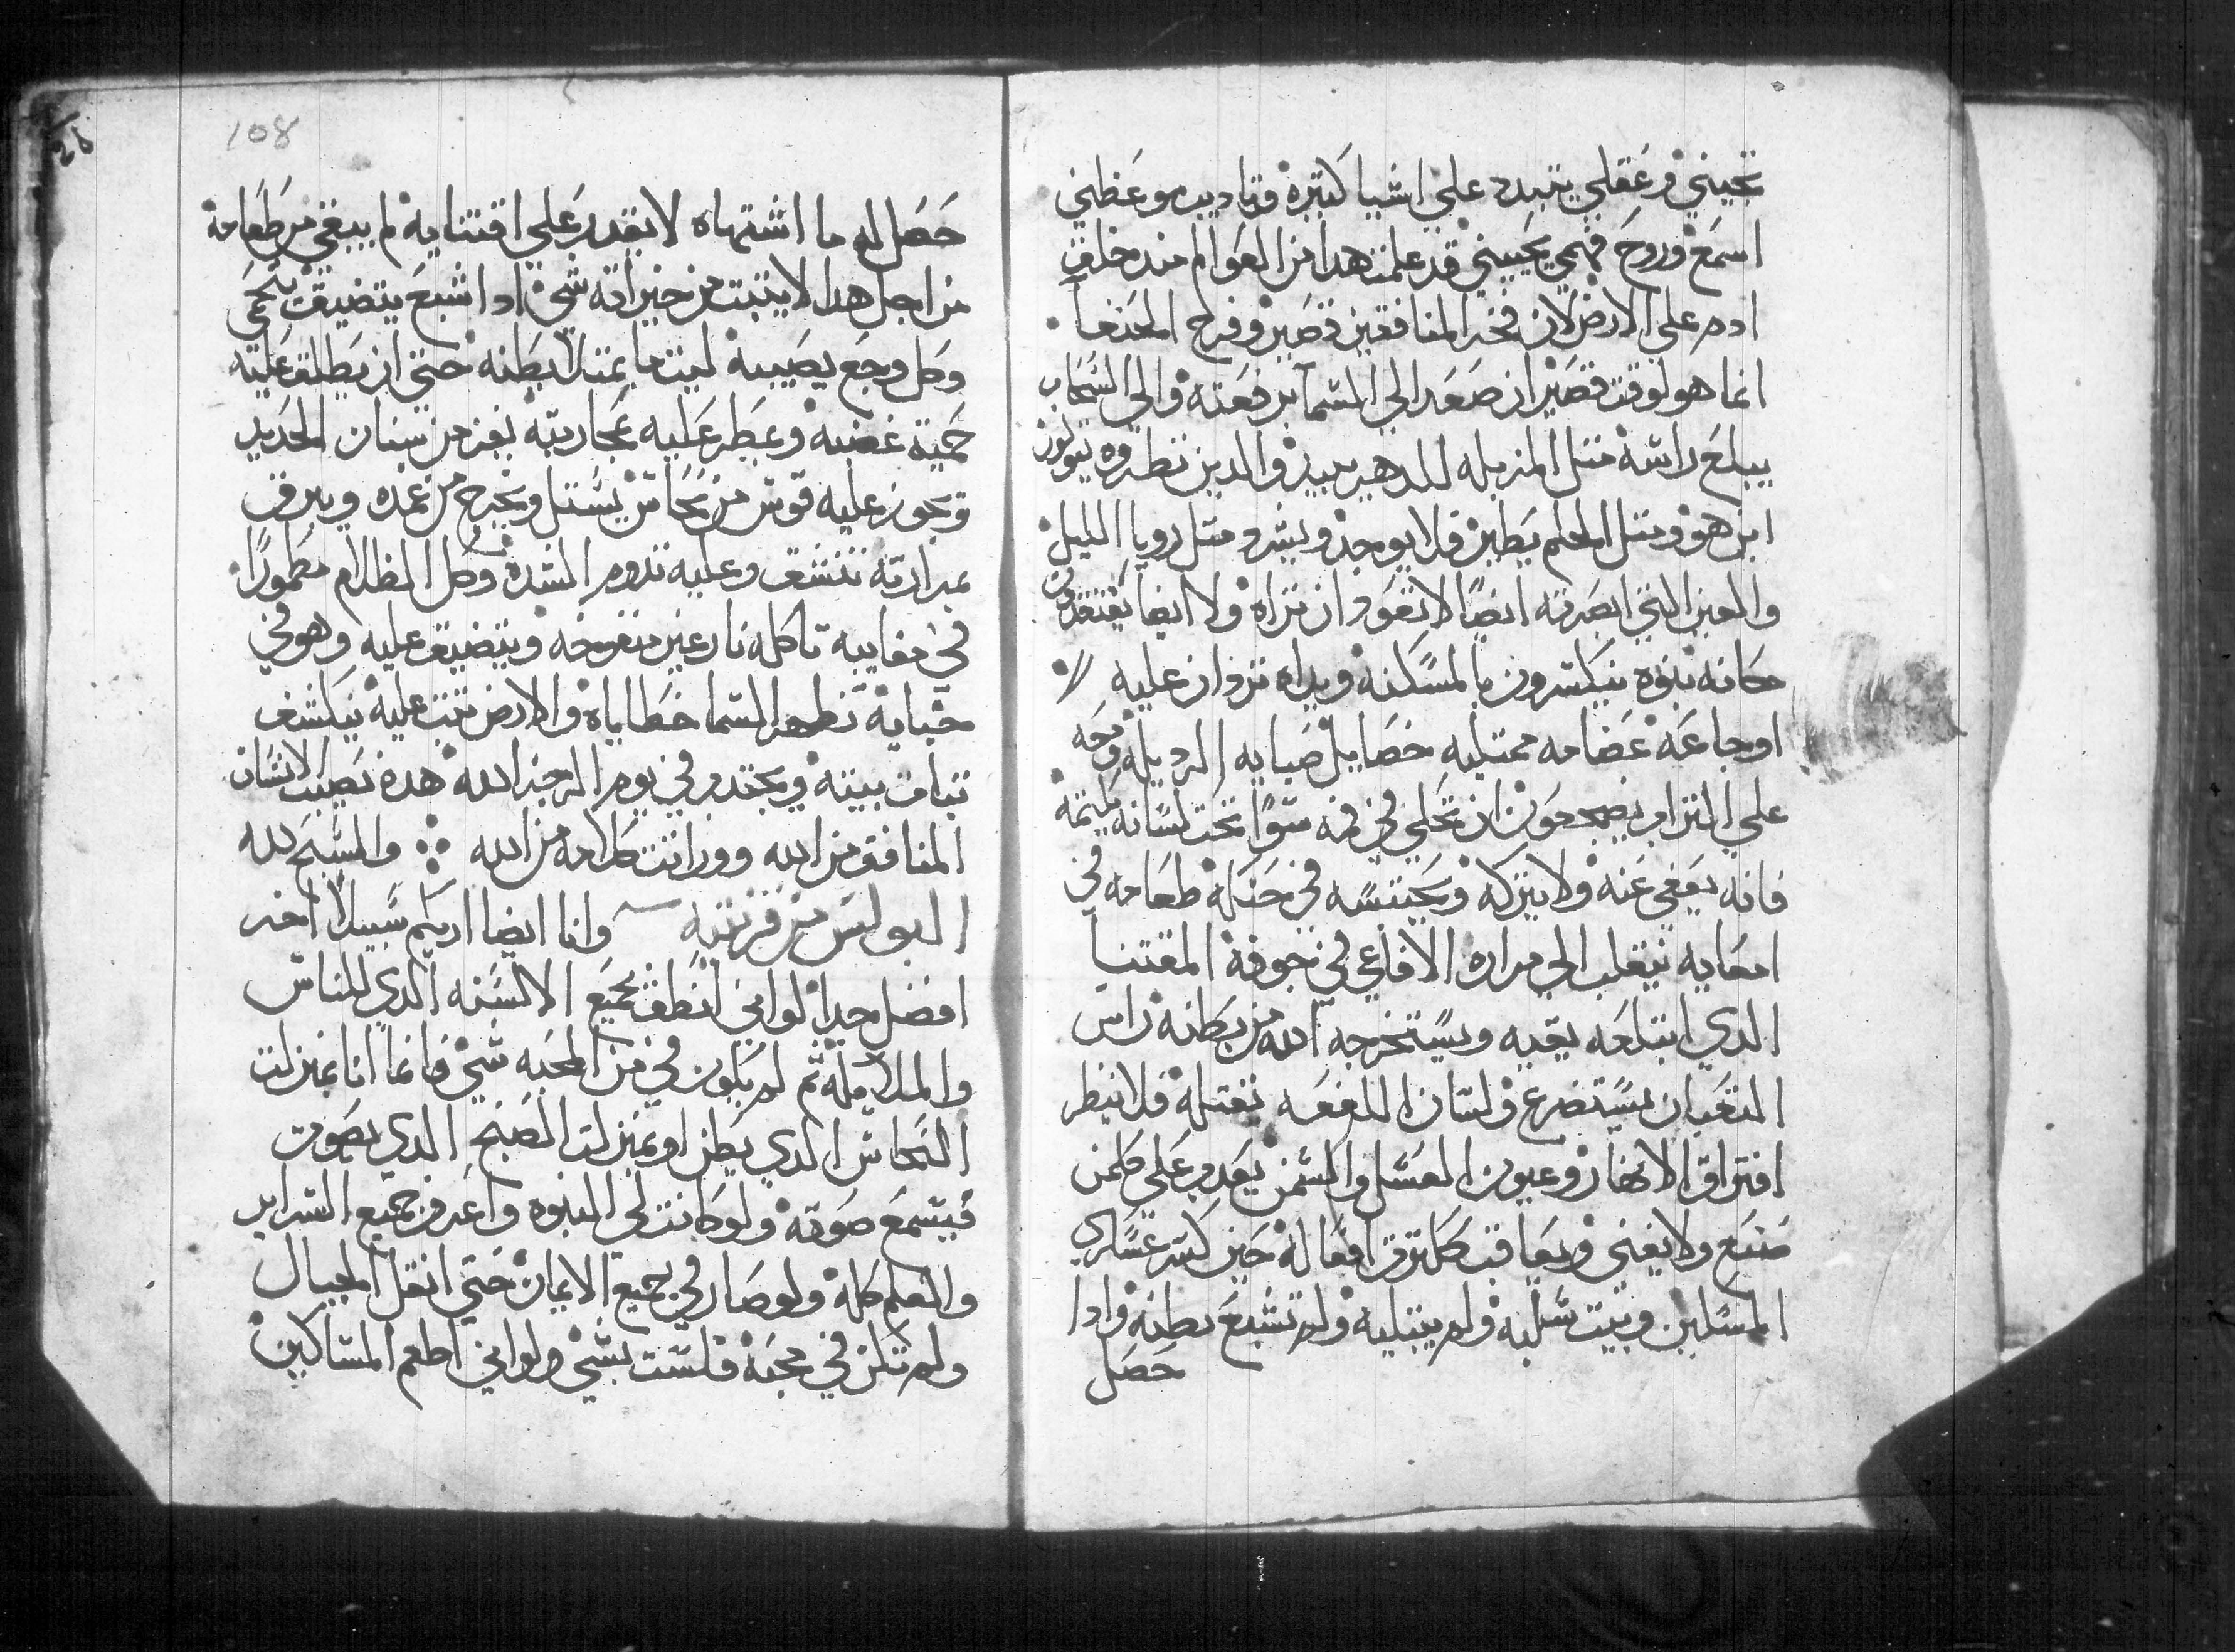 تجيبني وعقلي يتبدد علي اشيا كتيره وتاديب موعظتي
اسمع وروح فهمي يجيبني قد علمت هدا من العوالم مند خلق
ادم علي الارض لان فخر المنافقين قصير وفرح الحنفا
انما هو لوقت قصير ان صعد الي السما برفعته والي السحاب
يبلغ راسه متل المزبله للدهر يبيد والدين نظروه يقولون
اين هو ومتل الحلم يطير فلا يوجد ويشرد متل رويا الليل
والعين التي ابصرته ايضًا لا تعود ان تراه ولا ايضا يفتقدون
مكانه بنوه ينكسرون بالمسكنه ويداه تردان عليه
اوجاعه عضامه ممتليه خصايل صبايه الرديله ومعه
علي التراب يضجعون ان تحلي في فمه سوًا تحت لسانه يكتمه
فانه يعفي عنه ولا يتركه ويحبسه في حنكه طعامه في
امعايه ينقلب الي مرارة الافاعي في جوفه المقتنيا
الدي ابتلعه يقيه ويستخرجه الله من بطنه راس
التعبان يسترضع ولسان اللفعه تقتله فلا ينظر
افتراق الانهار وعيون العسل والسمن يعدب علي كلمن
صنع ولا يغني ويعاقب كما ترق افعاله حين كسر عساكر
المساكين وبيت سلبه ولم يبنيه ولم تشبع بطنه وادا
حصل
108
حصل له ما اشتهاه لا يقدر علي اقتنايه لم يبقي من طعامه
من اجل هدا لا يتبت من خيراته شي ادا شبع يتضيق يحمي
وكل وجع يصيبه ليت ما يمتلا بطنه حتي ان يطلق عليه
حمية غضبه ويمطر عليه بمحاربته يفر من سنان الحديد
وتجوز عليه قوس من نحاس يستل ويخرج من غمده ويبرق
بمرارته تنشق وعليه تدوم الشدة وكل الظلام مطمورًا
في خفاييه تاكله نار غير منفوخه ويتضيق عليه وهو في
خبايه تظهر السما خطاياه والارض تتب عليه ينكشف
تبات بيته ويجتدب في يوم الرجز الله هده نصيب الانسان
المنافق من الله ووراتت كلامه من الله والسبح لله
البولس من قرنتيه وانا ايضا اريكم سبيلا اخر
افضل جدا لو اني انطق بجميع الالسنه الدي للناس
والملايكه تم لم يكون في من المحبه شي فانما انا بمنزلت
النحاس الدي يطن او بمنزلت الصنج الدي يصوت
فيسمع صوته ولو كانت لي النبوه واعرف جميع السراير
والعلم كله ولو صار في جميع الايمان حتي انقل الجبال
ولم تكن في محبه فلست بشي ولو اني اطعم المساكين